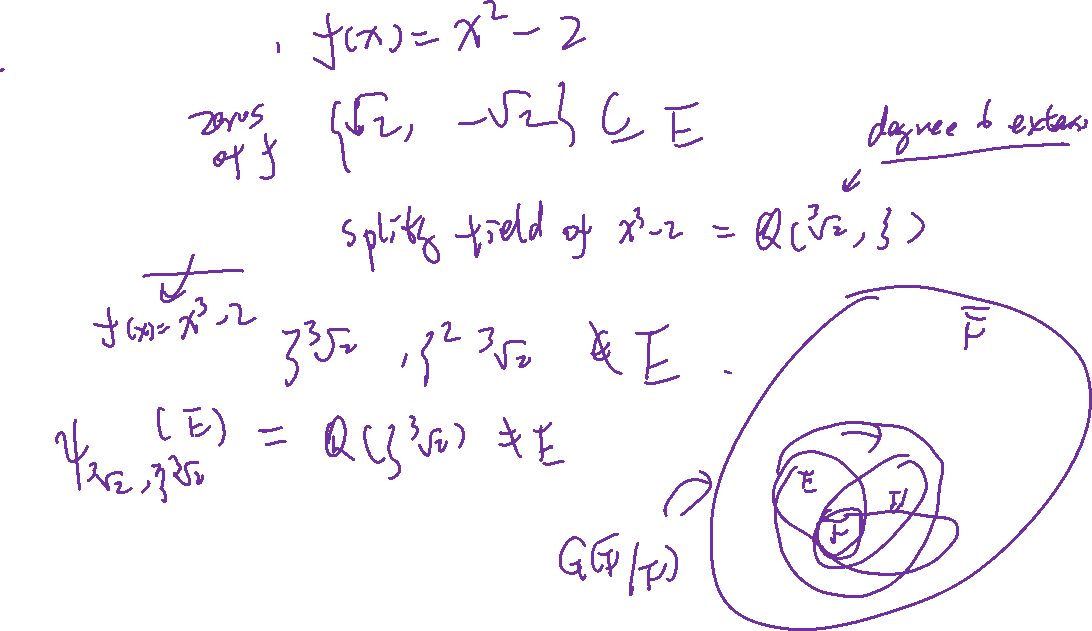 f(x) = x² - 2
zeros of f {√2, -√2} ⊂ E
degree 6 extens
splitting field of x³-2 = Q(³√2, ζ)
f(x) = x³-2
ζ³√2, ζ² ³√2 ∉ E.
ψ_{³√2, ζ³√2} (E) = Q(ζ³√2) ≠ E
F̄
E
F
G(F̄/F)